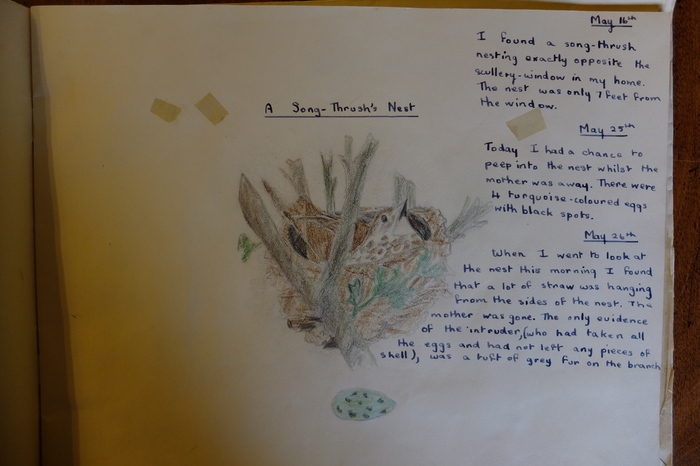 A Song-Thrush's Nest
May 16th
I found a song-thrush
nesting exactly opposite the
scullery-window in my home.
The nest was only 7 feet from
the window.
May 25th
Today I had a chance to
peep into the nest whilst the
mother was away. There were
4 turquoise-coloured eggs
with black spots.
May 26th
When I went to look at
the nest this morning I found
that a lot of straw was hanging
from the sides of the nest. The
mother was gone. The only evidence
of the intruder, (who had taken all
the eggs and had not left any pieces of
shell), was a tuft of grey fur on the branch